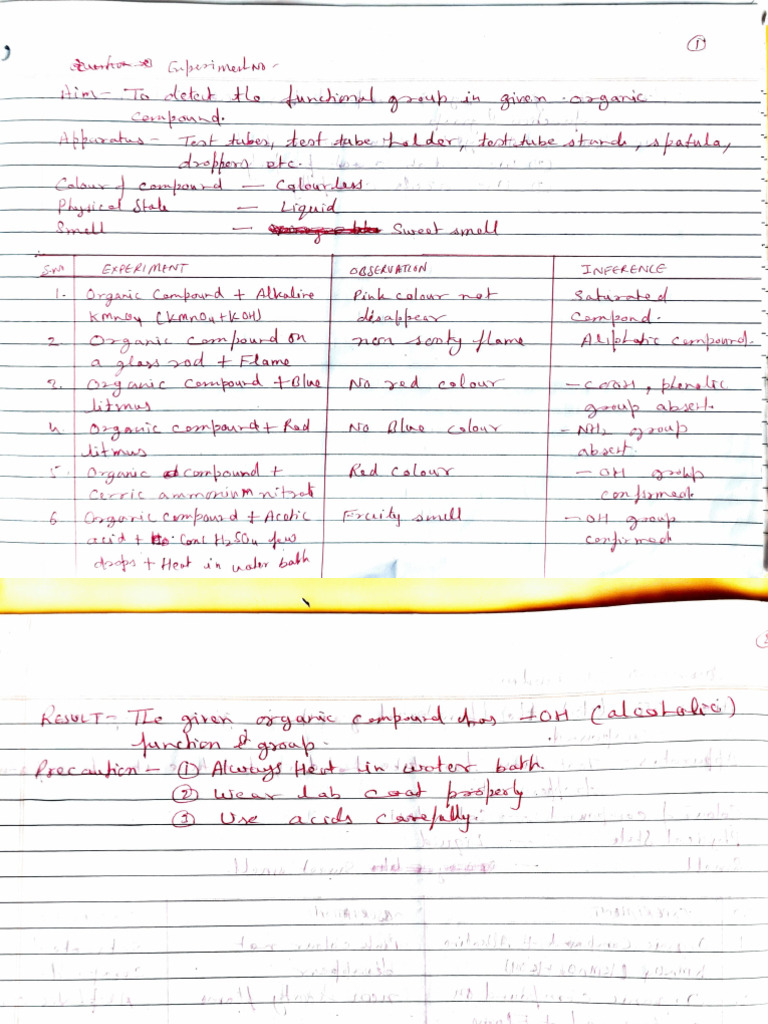 ①
Experiment No -
Aim - To detect the functional group in given organic
compound.
Apparatus - Test tubes, test tube holder, test tube stands, spatula,
droppers etc.
Colour of compound — Colourless
Physical State — Liquid
Smell — Sweet smell
S.no EXPERIMENT OBSERVATION INFERENCE
1. Organic Compound + Alkaline Pink colour not Saturated
KMnO4 (KMnO4+KOH) disappear Compond.
2 Organic compound on non sooty flame Aliphatic compound.
a glass rod + Flame
3. Organic compound + Blue No red colour - COOH, phenolic
litmus group absent.
4. Organic compound + Red No Blue colour - NH2 group
litmus absent.
5. Organic compound + Red colour - OH group
cerric ammonium nitrat confirmed
6. Organic compound + Acetic Fruity smell - OH group
acid + Conc H2SO4 few confirmed
drops + Heat in water bath
RESULT - The given organic compound has -OH (alcoholic)
function group.
Precaution - ① Always Heat in water bath.
② Wear lab coat properly
③ Use acids carefully.